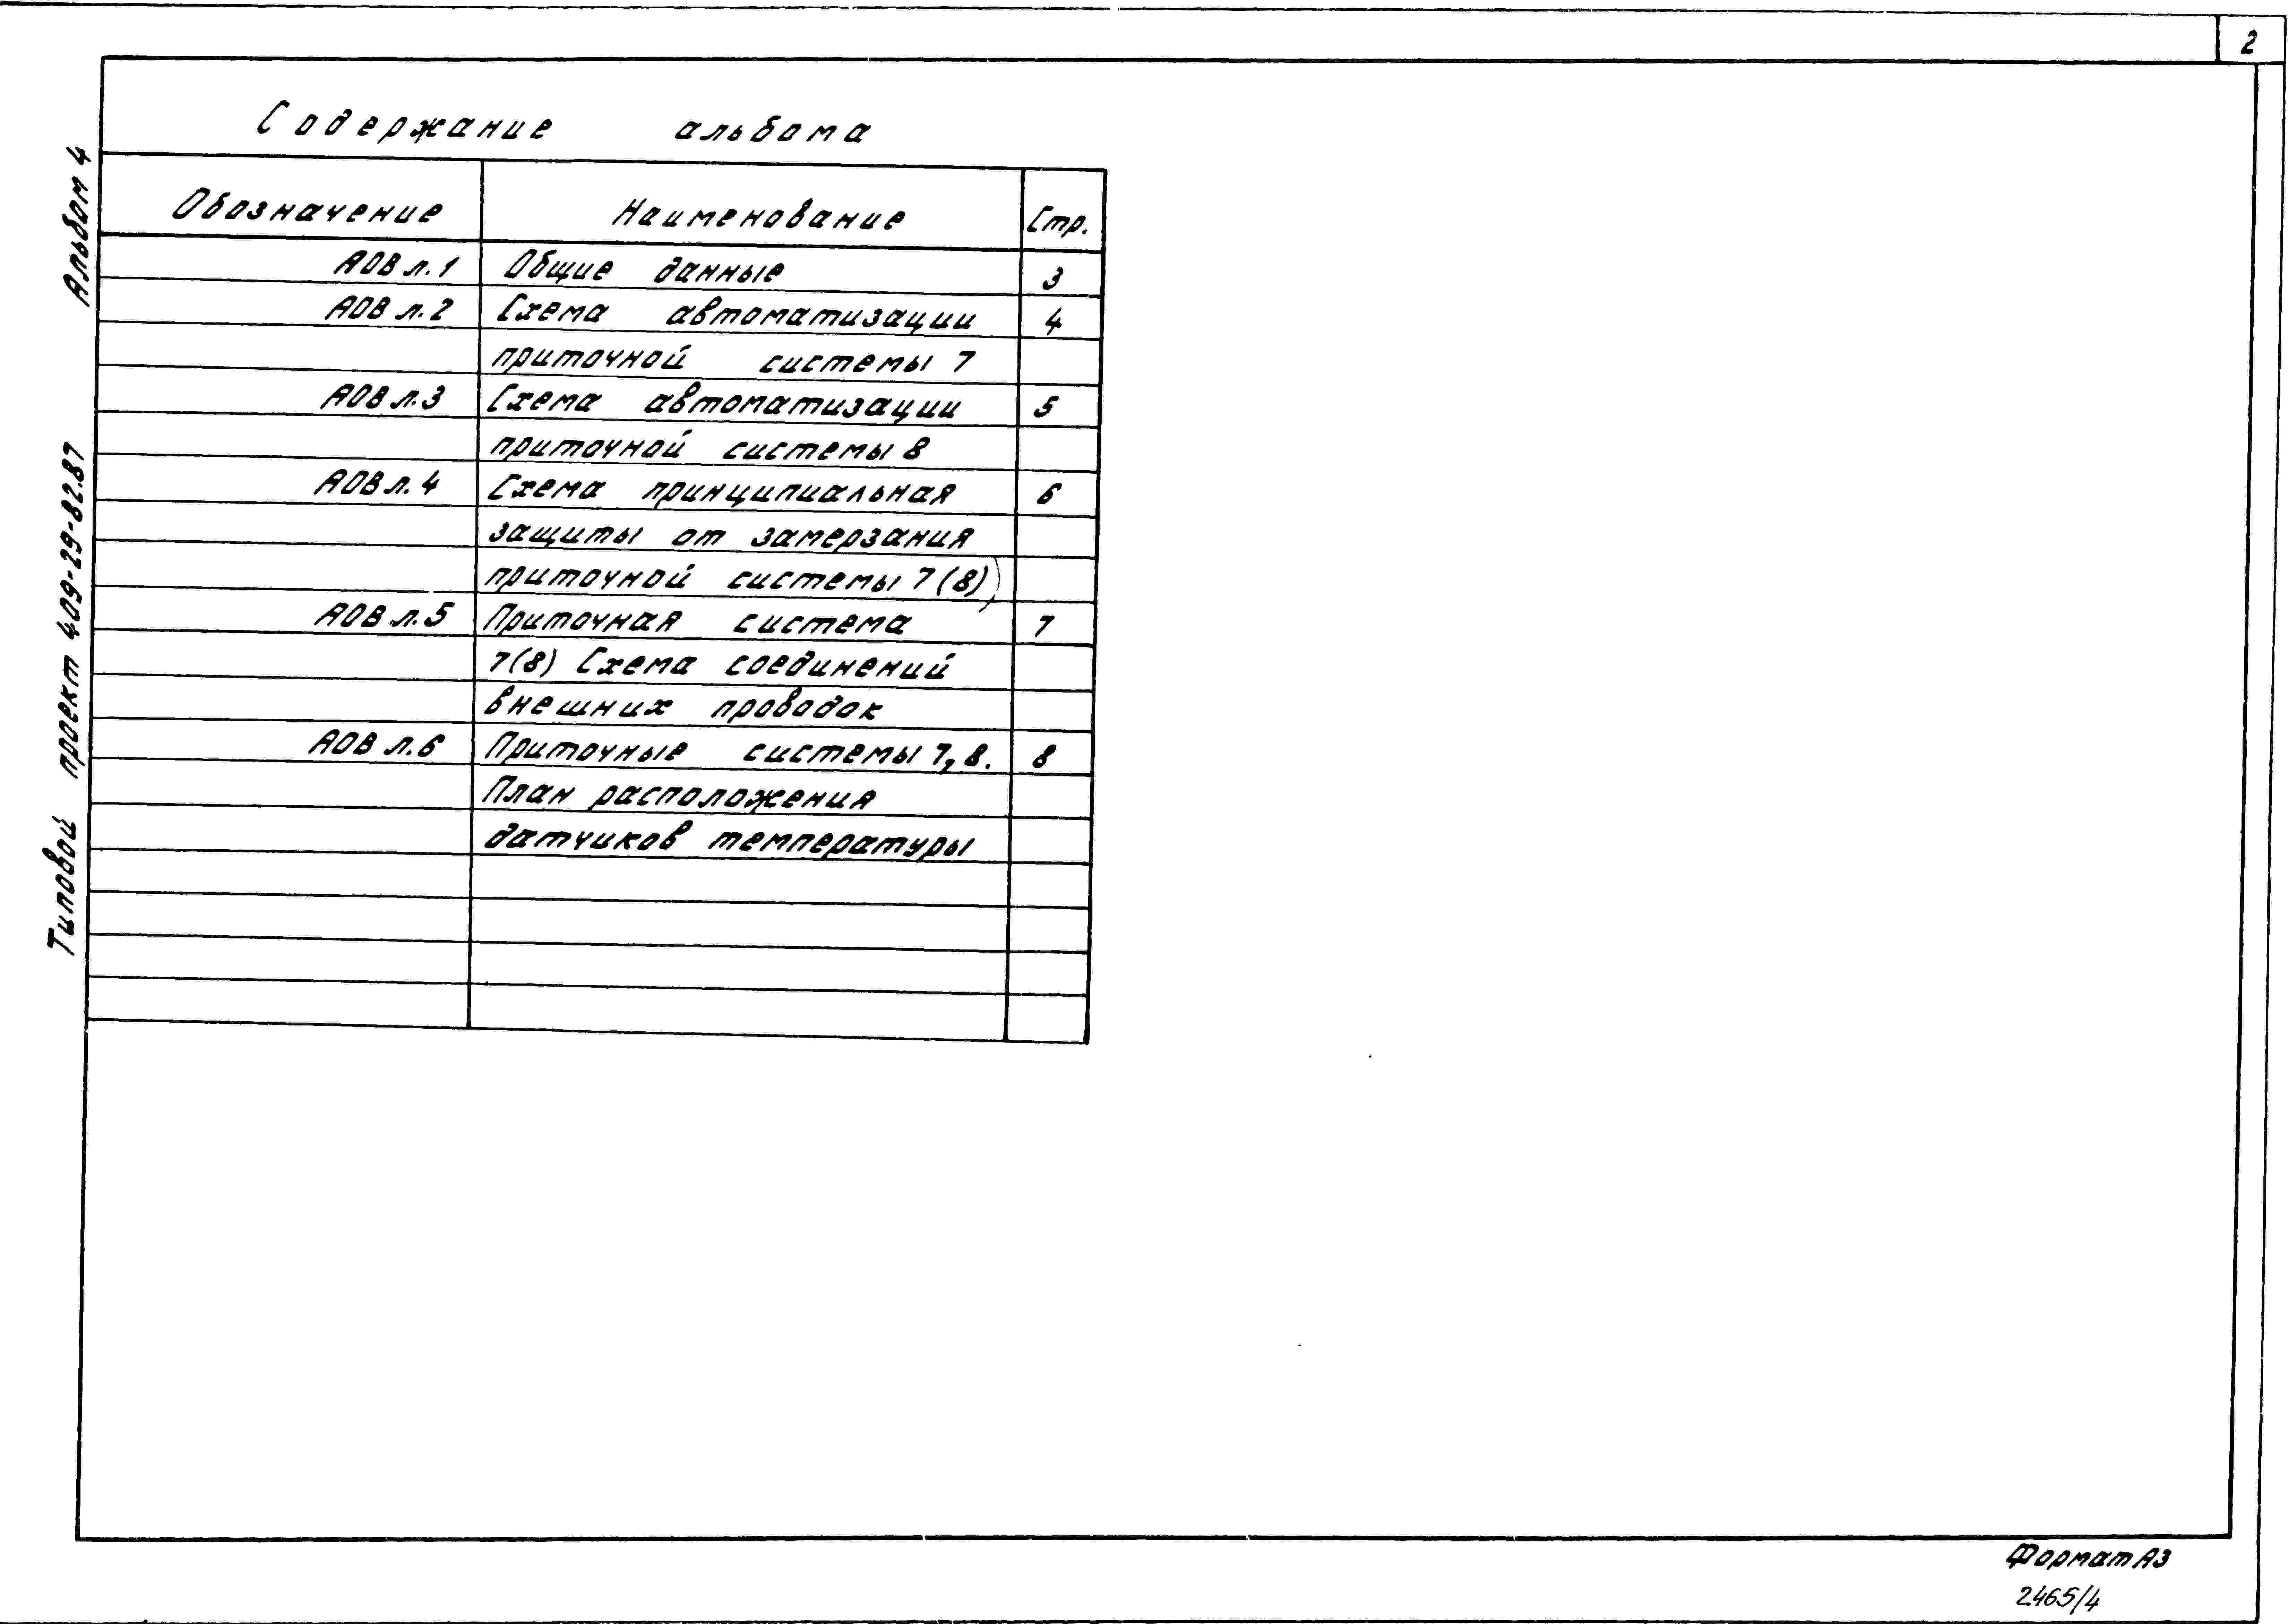 2
Содержание альбома
Обозначение Наименование Стр.
АОВ л.1 Общие данные 3
АОВ л.2 Схема автоматизации 4
приточной системы 7
АОВ л.3 Схема автоматизации 5
приточной системы 8
АОВ л.4 Схема принципиальная 6
защиты от замерзания
приточной системы 7(8)
АОВ л.5 Приточная система 7
7(8) Схема соединений
внешних проводок
АОВ л.6 Приточные системы 7, 8. 8
План расположения
датчиков температуры
Типовой проект 409-29-82.87 Альбом 4
Формат А3
2465/4